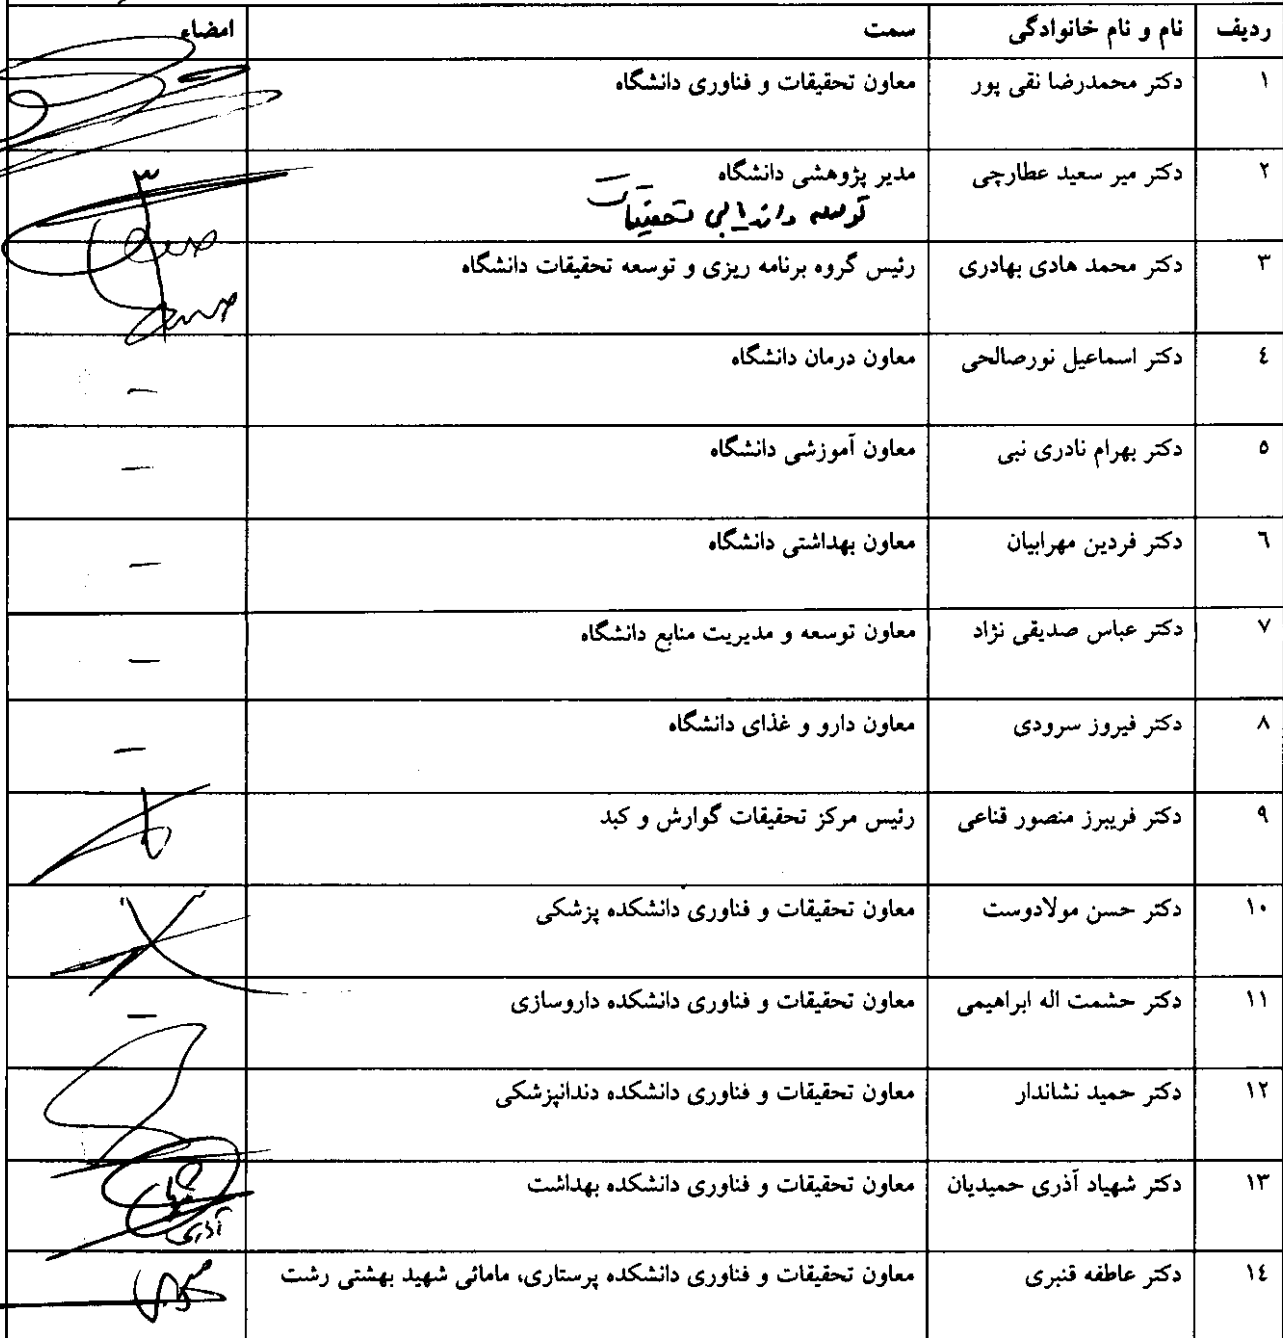 ردیف نام و نام خانوادگی سمت امضاء
۱ دکتر محمدرضا نقی پور معاون تحقیقات و فناوری دانشگاه
۲ دکتر میر سعید عطارچی مدیر پژوهشی دانشگاه
توسعه و ارزیابی تحقیقات
۳ دکتر محمد هادی بهادری رئیس گروه برنامه ریزی و توسعه تحقیقات دانشگاه
٤ دکتر اسماعیل نورصالحی معاون درمان دانشگاه –
٥ دکتر بهرام نادری نبی معاون آموزشی دانشگاه –
٦ دکتر فردین مهرابیان معاون بهداشتی دانشگاه –
۷ دکتر عباس صدیقی نژاد معاون توسعه و مدیریت منابع دانشگاه –
۸ دکتر فیروز سرودی معاون دارو و غذای دانشگاه –
۹ دکتر فریبرز منصور قناعی رئیس مرکز تحقیقات گوارش و کبد
۱۰ دکتر حسن مولادوست معاون تحقیقات و فناوری دانشکده پزشکی
۱۱ دکتر حشمت اله ابراهیمی معاون تحقیقات و فناوری دانشکده داروسازی –
۱۲ دکتر حمید نشاندار معاون تحقیقات و فناوری دانشکده دندانپزشکی
۱۳ دکتر شهیاد آذری حمیدیان معاون تحقیقات و فناوری دانشکده بهداشت
۱٤ دکتر عاطفه قنبری معاون تحقیقات و فناوری دانشکده پرستاری، مامائی شهید بهشتی رشت